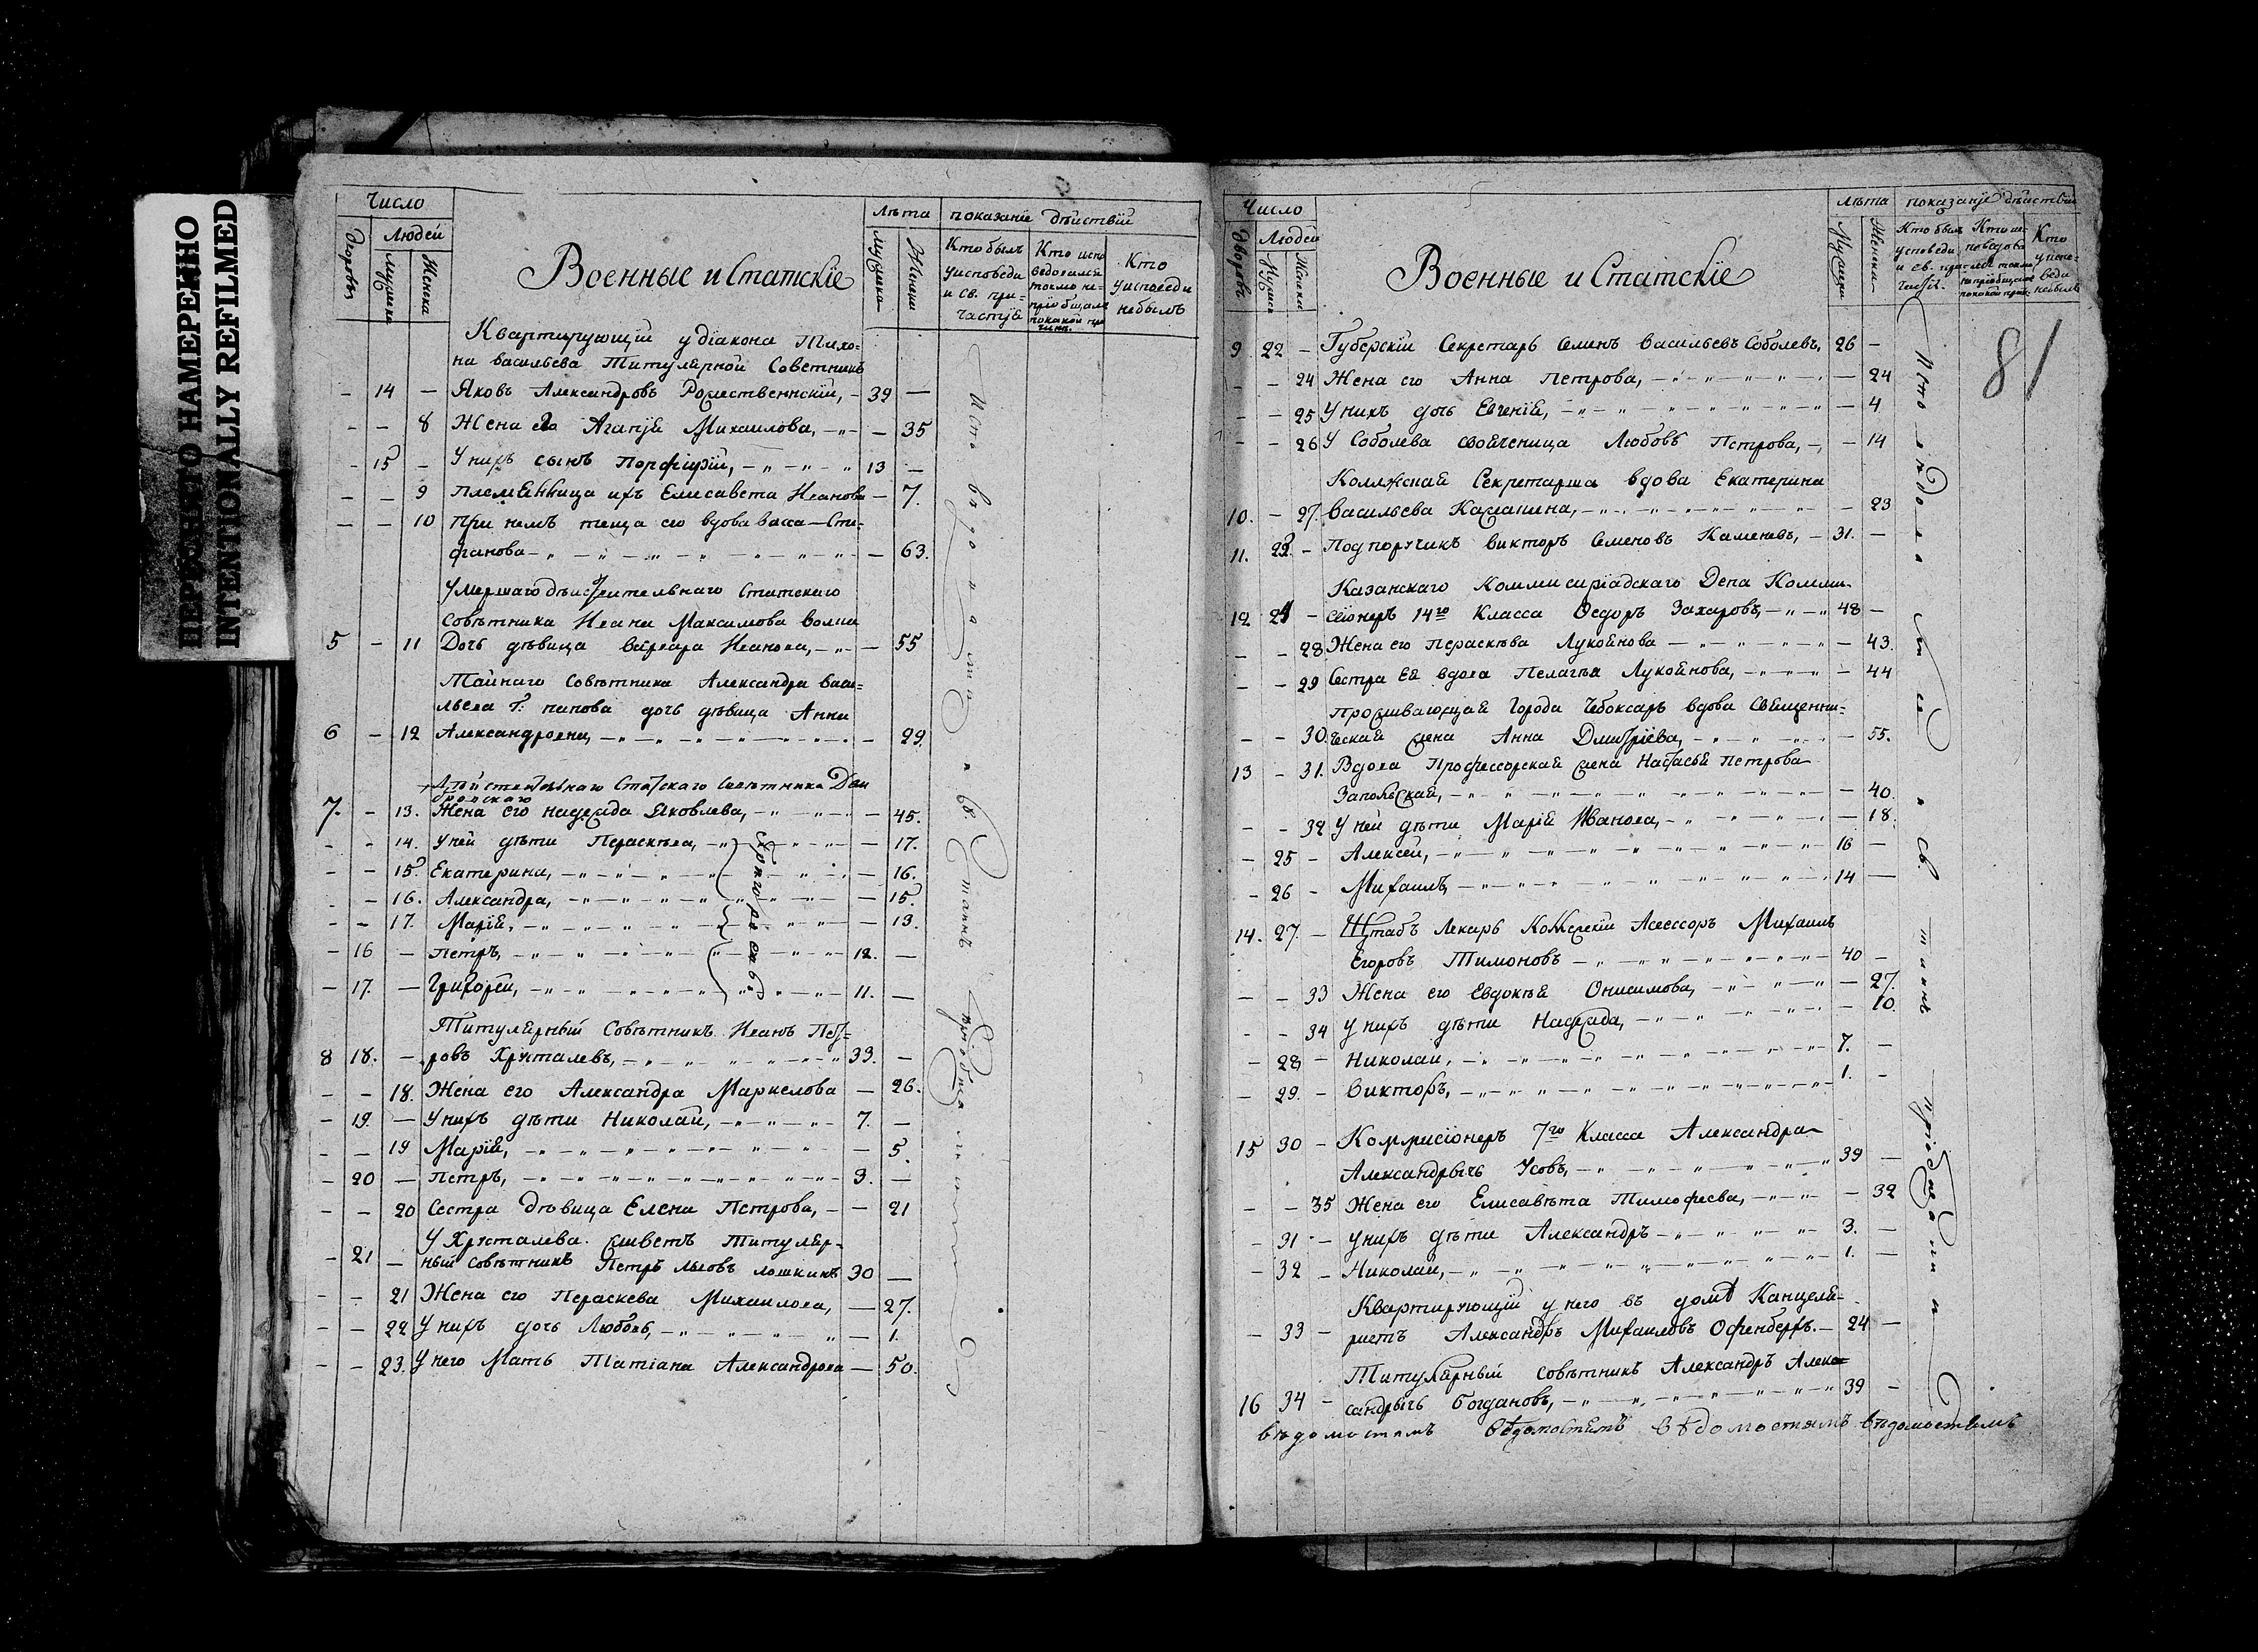 НЕРРЕОНЯТО НАМЕРЕННО
INTENTIONALLY REFILMED
Число
Дворовъ
Людей
Мужеска
Женска
Военные и Статскіе
Лѣта
Мужеска
Женска
показаніе дѣйствій
Кто былъ у исповеди и св. при=частія
Кто испо ведовался токмо не пріобщался по какой при чинѣ
Кто у исповеди небылъ
Квартирующій у діакона Тихо=
на Васильева Титулярной Советникъ
- 14 - Яковъ Александровъ Рожественнскій, - 39 -
- - 8 Жена его Агапія Михаилова, - - 35
- 15 - У нихъ сынъ Порфирій, - 13 -
- - 9 Племянница ихъ Елисавета Иванова - 7.
- - 10 При немъ теща его вдова Васса Сте=
фанова - - 63.
Умершаго дѣиствительнаго Статскаго
Совѣтника Ивана Максимова
5 - 11 Дочь дѣвица Варвара Иванова, - - 55
Тайнаго Совѣтника Александра Васи=
льева дочь дѣвица Анна
6 - 12 Александровна, - - 29.
Дѣйствительнаго Статскаго Совѣтника
7. - 13. Жена его Надежда Яковлева, - - 45.
- - 14. У ней дѣти Параскева, - - 17.
- - 15. Екатерина, - - 16.
- - 16. Александра, - - 15.
- - 17. Марія, - - 13.
- 16 - Петръ, - 12. -
- 17. - Григорей, - 11. -
Титулярный Совѣтникъ Иванъ Пет=
8 18. - ровъ Хрусталевъ, - 33. -
- - 18. Жена его Александра Маркелова - 26.
- 19. - У нихъ дѣти Николай, - 7. -
- - 19 Марія, - - 5.
- 20 - Петръ, - 3. -
- - 20 Сестра дѣвица Елена Петрова, - - 21
У Хрусталева живетъ Титуляр-
- 21 - ный совѣтникъ Петръ Львовъ Лошкинъ 30 -
- - 21 Жена его Параскева Михаилова, - 27.
- - 22 У нихъ дочь Любовь, - - 1.
- - 23. У него Мать Татіана Александрова - 50.
Исповѣдались и св. таинъ пріобщались
Число
Дворовъ
Людей
Мужеск
Женска
Военные и Статскіе
Лѣта
Мужеска
Женска
показаніе дѣйствій
Кто былъ у исповеди и св. при частія
Кто у испо=веди небылъ
81
9 22 - Губерскій Секретарь Семенъ Васильевъ Соболевъ, 26 -
- - 24 Жена его Анна Петрова, - - 24
- - 25 У нихъ дочь Евгенія, - - 4
- - 26 У Соболева своячница Любовь Петрова, - - 14
Коллжская Секретарша вдова Екатерина
10. - 27. Васильева Касаткина, - - 23
11. 23. - Подпоручикъ Викторъ Семеновъ Каменевъ, - 31. -
Казанскаго Коммисиріадскаго Депа Комми
12 24 - сіонеръ 14го Класса Ѳедоръ Захаровъ, - 48 -
- - 28 Жена его Параскѣва Лукоянова - - 43.
- - 29 Сестра ея вдова Пелагѣя Лукоянова, - - 44
Проживающая Города Чебоксаръ вдова Священни=
- - 30. ческая жена Анна Дмитріева, - - 55.
13 - 31. Вдова Профессорская жена Настасья Петрова
Запольская, - - 40.
- - 32 У ней дѣти Марія Иванова, - - 18.
- 25 - Алексей, - 16 -
- 26 - Михаилъ, - 14 -
14. 27. - Штабъ Лекарь Коллежскій Асессоръ Михаилъ
Егоровъ Тимоновъ - 40 -
- - 33 Жена его Евдокѣя Онисимова, - - 27.
- - 34 У нихъ дѣти Надежда, - - 10.
- 28 - Николай, - 7. -
- 29. - Викторъ, - 1. -
15 30 - Коммисіонеръ 7го Класса Александра
Александрычъ Усовъ, - 39 -
- - 35 Жена его Елисавѣта Тимофеева, - - 32
- 31 - У нихъ дѣти Александръ - 3. -
- 32 - Николай, - 1. -
Квартирующій у него въ домѣ Канцеля-
- 33 - ристъ Александръ Михаиловъ Офенбергъ. - 24 -
Титулярный совѣтникъ Александръ Алек
16 34 - сандрычь Богдановъ, - 39 -
вѣдомостямъ вѣдомостямъ вѣдомостямъ вѣдомостямъ
Исповѣдались и св. таинъ пріобщались